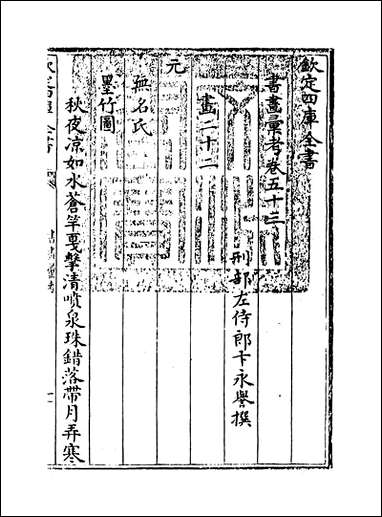 欽定四庫全書
書畫彙考卷五十三
刑部左侍郎卞永譽撰
畫二十三
元
無名氏
墨竹圖
秋夜凉如水蒼竿戛擊清噴泉珠錯落帶月弄寒